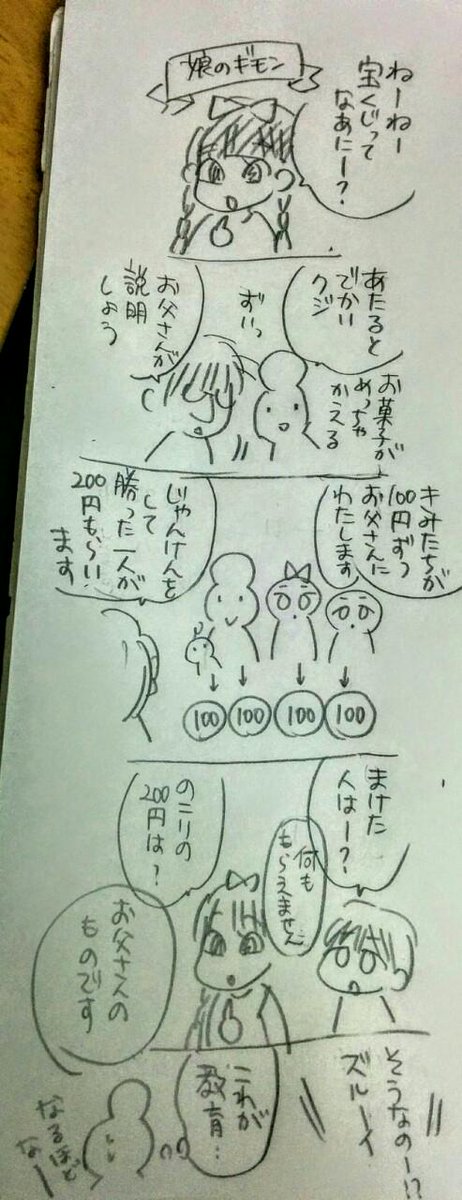 娘のギモン
ねーねー
宝くじって
なあにー?
あたると
でかい
クジ
お菓子が
めっちゃ
かえる
ずいっ
お父さんが
説明
しよう
きみたちが
100円ずつ
お父さんに
わたします
じゃんけんを
して
勝った一人が
200円もらい
ます
100
100
100
100
まけた
人はー?
何も
もらえません
のこりの
200円は?
お父さんの
ものです
そうなのー!?
ズルーイ
これが
教育…
なるほど
なー